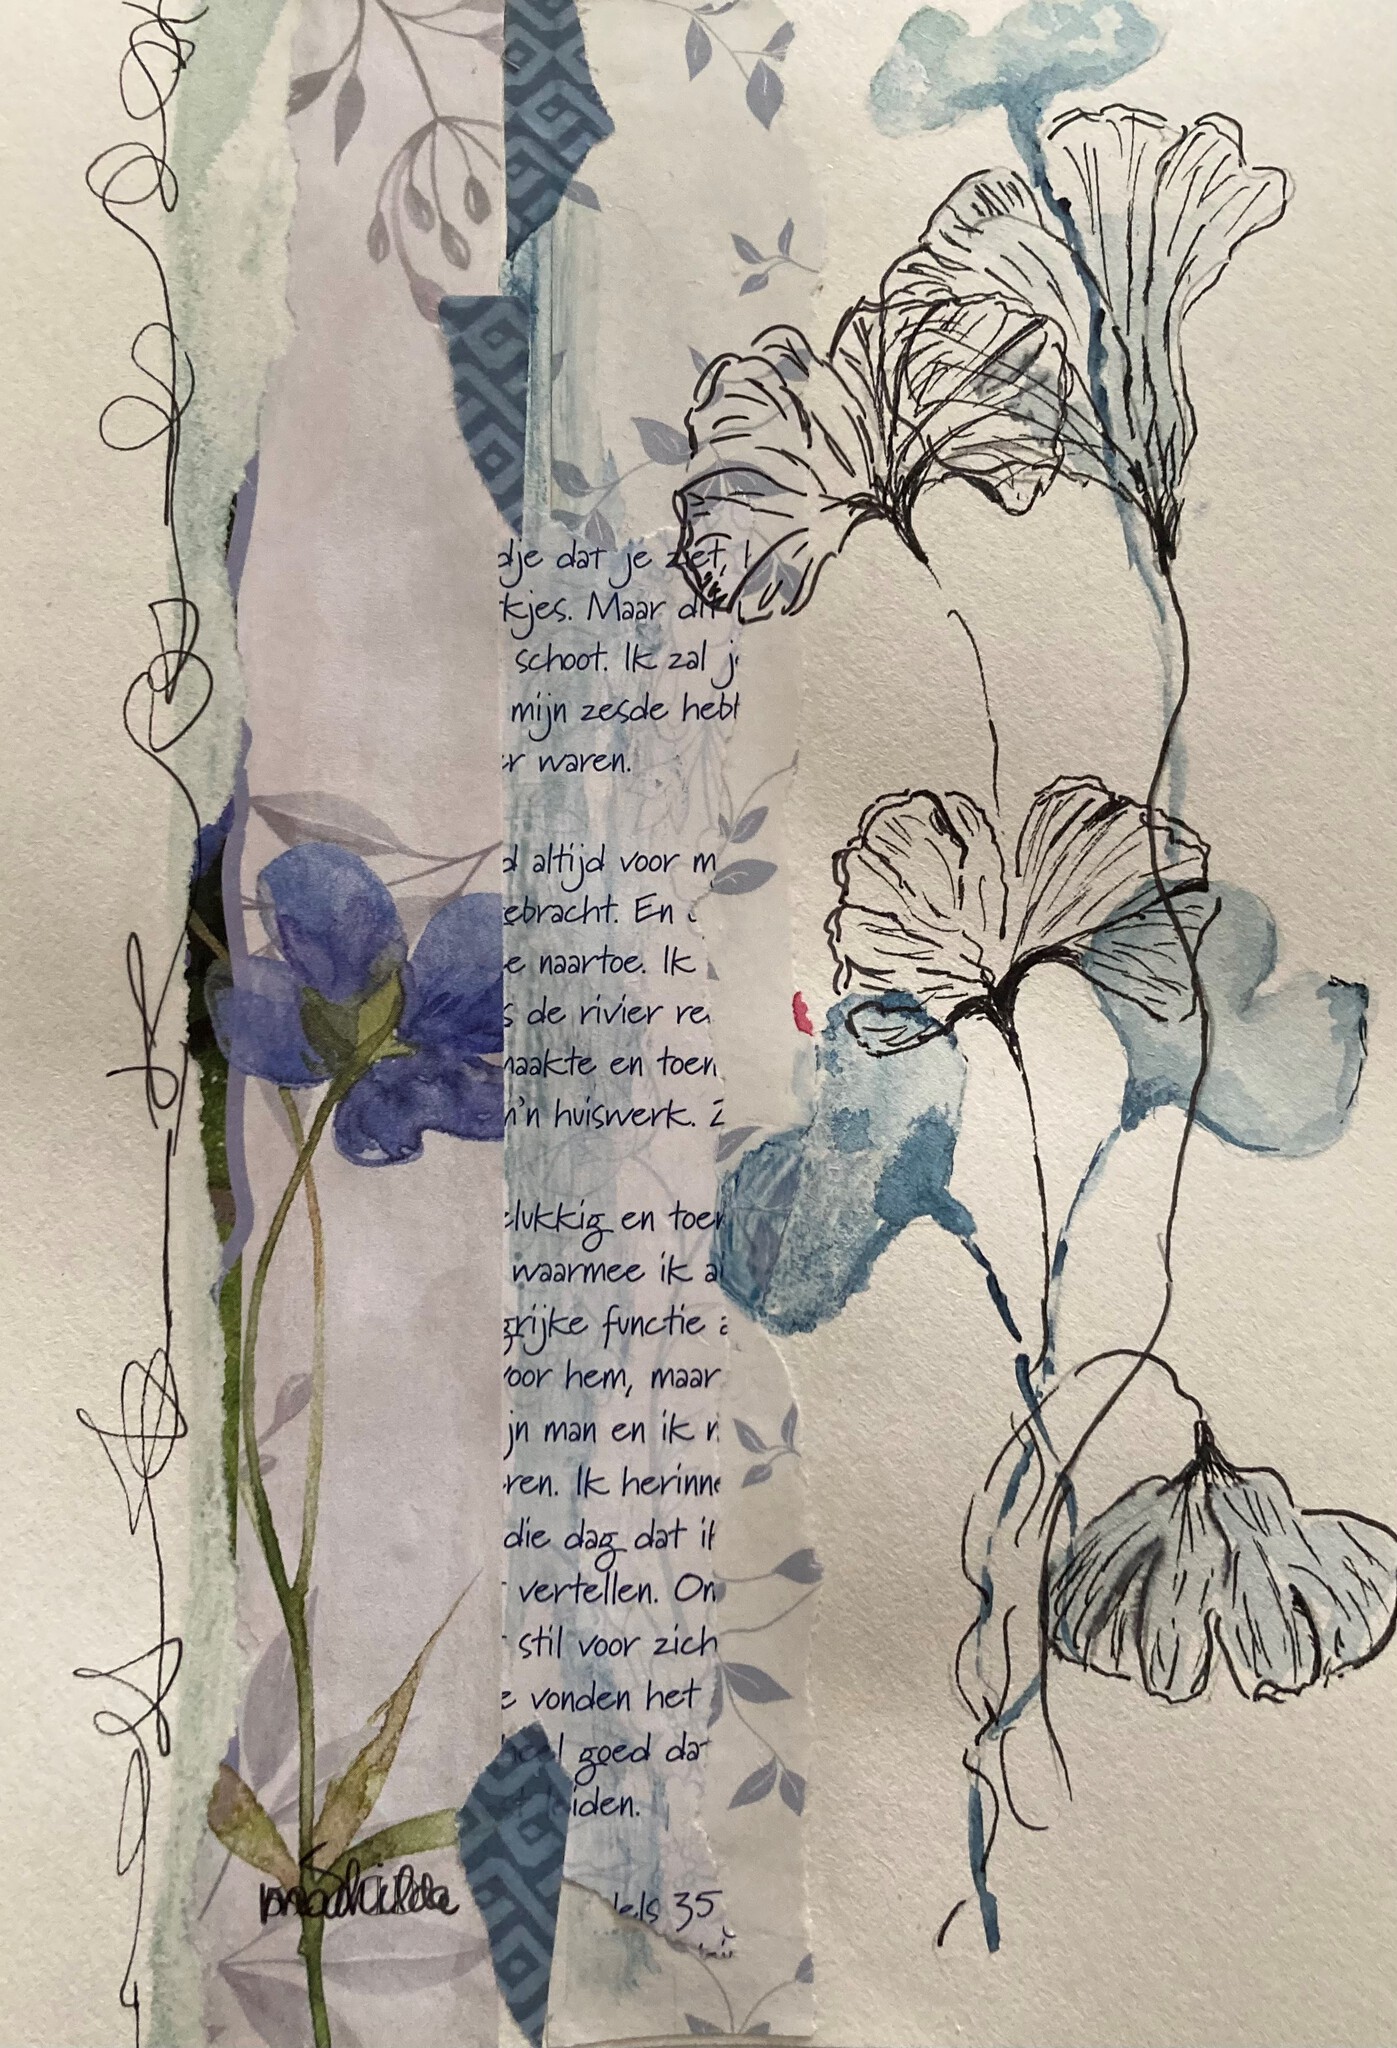 dje dat je ziet,
kjes. Maar dit
schoot. Ik zal je
mijn zesde hebt
er waren.
d altijd voor m
ebracht. En
e naartoe. Ik
s de rivier re
maakte en toen
m'n huiswerk. Z
elukkig en toen
waarmee ik a
grijke functie a
voor hem, maar
ijn man en ik n
ren. Ik herinne
die dag dat ik
vertellen. On
stil voor zich
e vonden het
heel goed dat
leiden.
dels 35